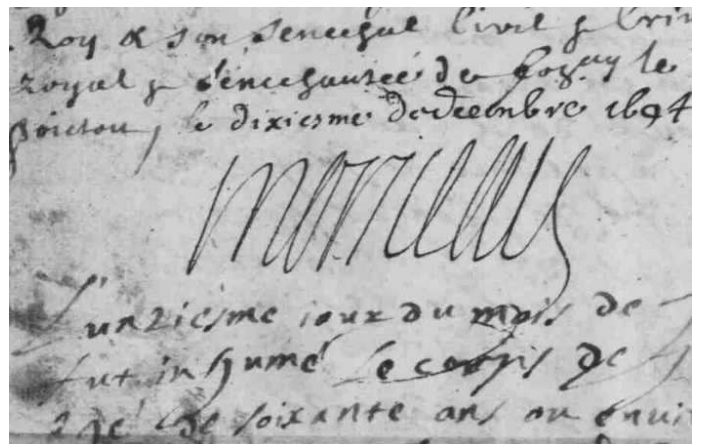 Roy & son senechal Civil & Crim
royal & senechaucée de le
poictou, le dixiesme de decembre 1694
L'unziesme jour du mois de
fut inhumé Le corps de
agé de soixante ans ou envi